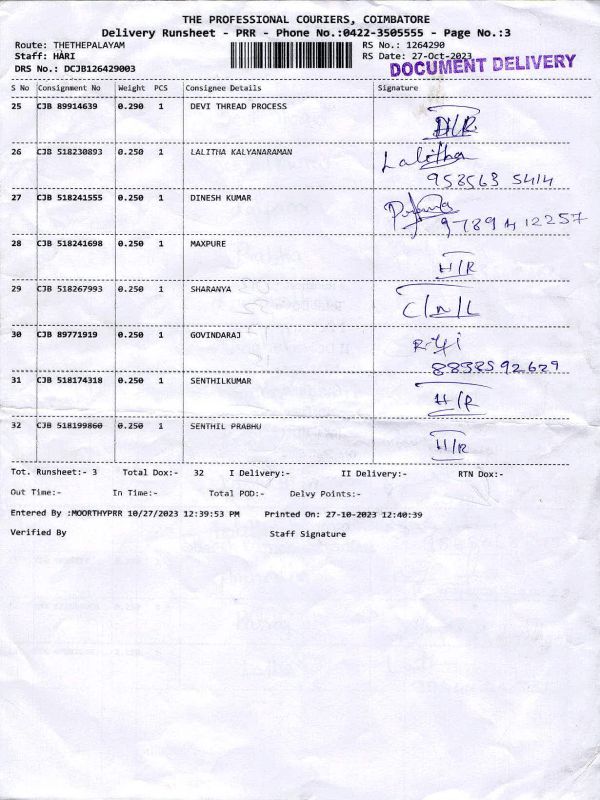 THE PROFESSIONAL COURIERS, COIMBATORE
Delivery Runsheet - PRR - Phone No.:0422-3505555 - Page No.:3
Route: THETHEPALAYAM RS No.: 1264290
Staff: HARI RS Date: 27-Oct-2023
DRS No.: DCJB126429003 DOCUMENT DELIVERY
S No Consignment No Weight PCS Consignee Details Signature
25 CJB 89914639 0.290 1 DEVI THREAD PROCESS H/R
26 CJB 518230893 0.250 1 LALITHA KALYANARAMAN Lalitha
958563 5414
27 CJB 518241555 0.250 1 DINESH KUMAR
28 CJB 518241698 0.250 1 MAXPURE H/R
29 CJB 518267993 0.250 1 SHARANYA C/N/L
30 CJB 89771919 0.250 1 GOVINDARAJ
31 CJB 518174318 0.250 1 SENTHILKUMAR H/R
32 CJB 518199860 0.250 1 SENTHIL PRABHU H/R
Tot. Runsheet:- 3 Total Dox:- 32 I Delivery:- II Delivery:- RTN Dox:-
Out Time:- In Time:- Total POD:- Delvy Points:-
Entered By :MOORTHYPRR 10/27/2023 12:39:53 PM Printed On: 27-10-2023 12:40:39
Verified By Staff Signature